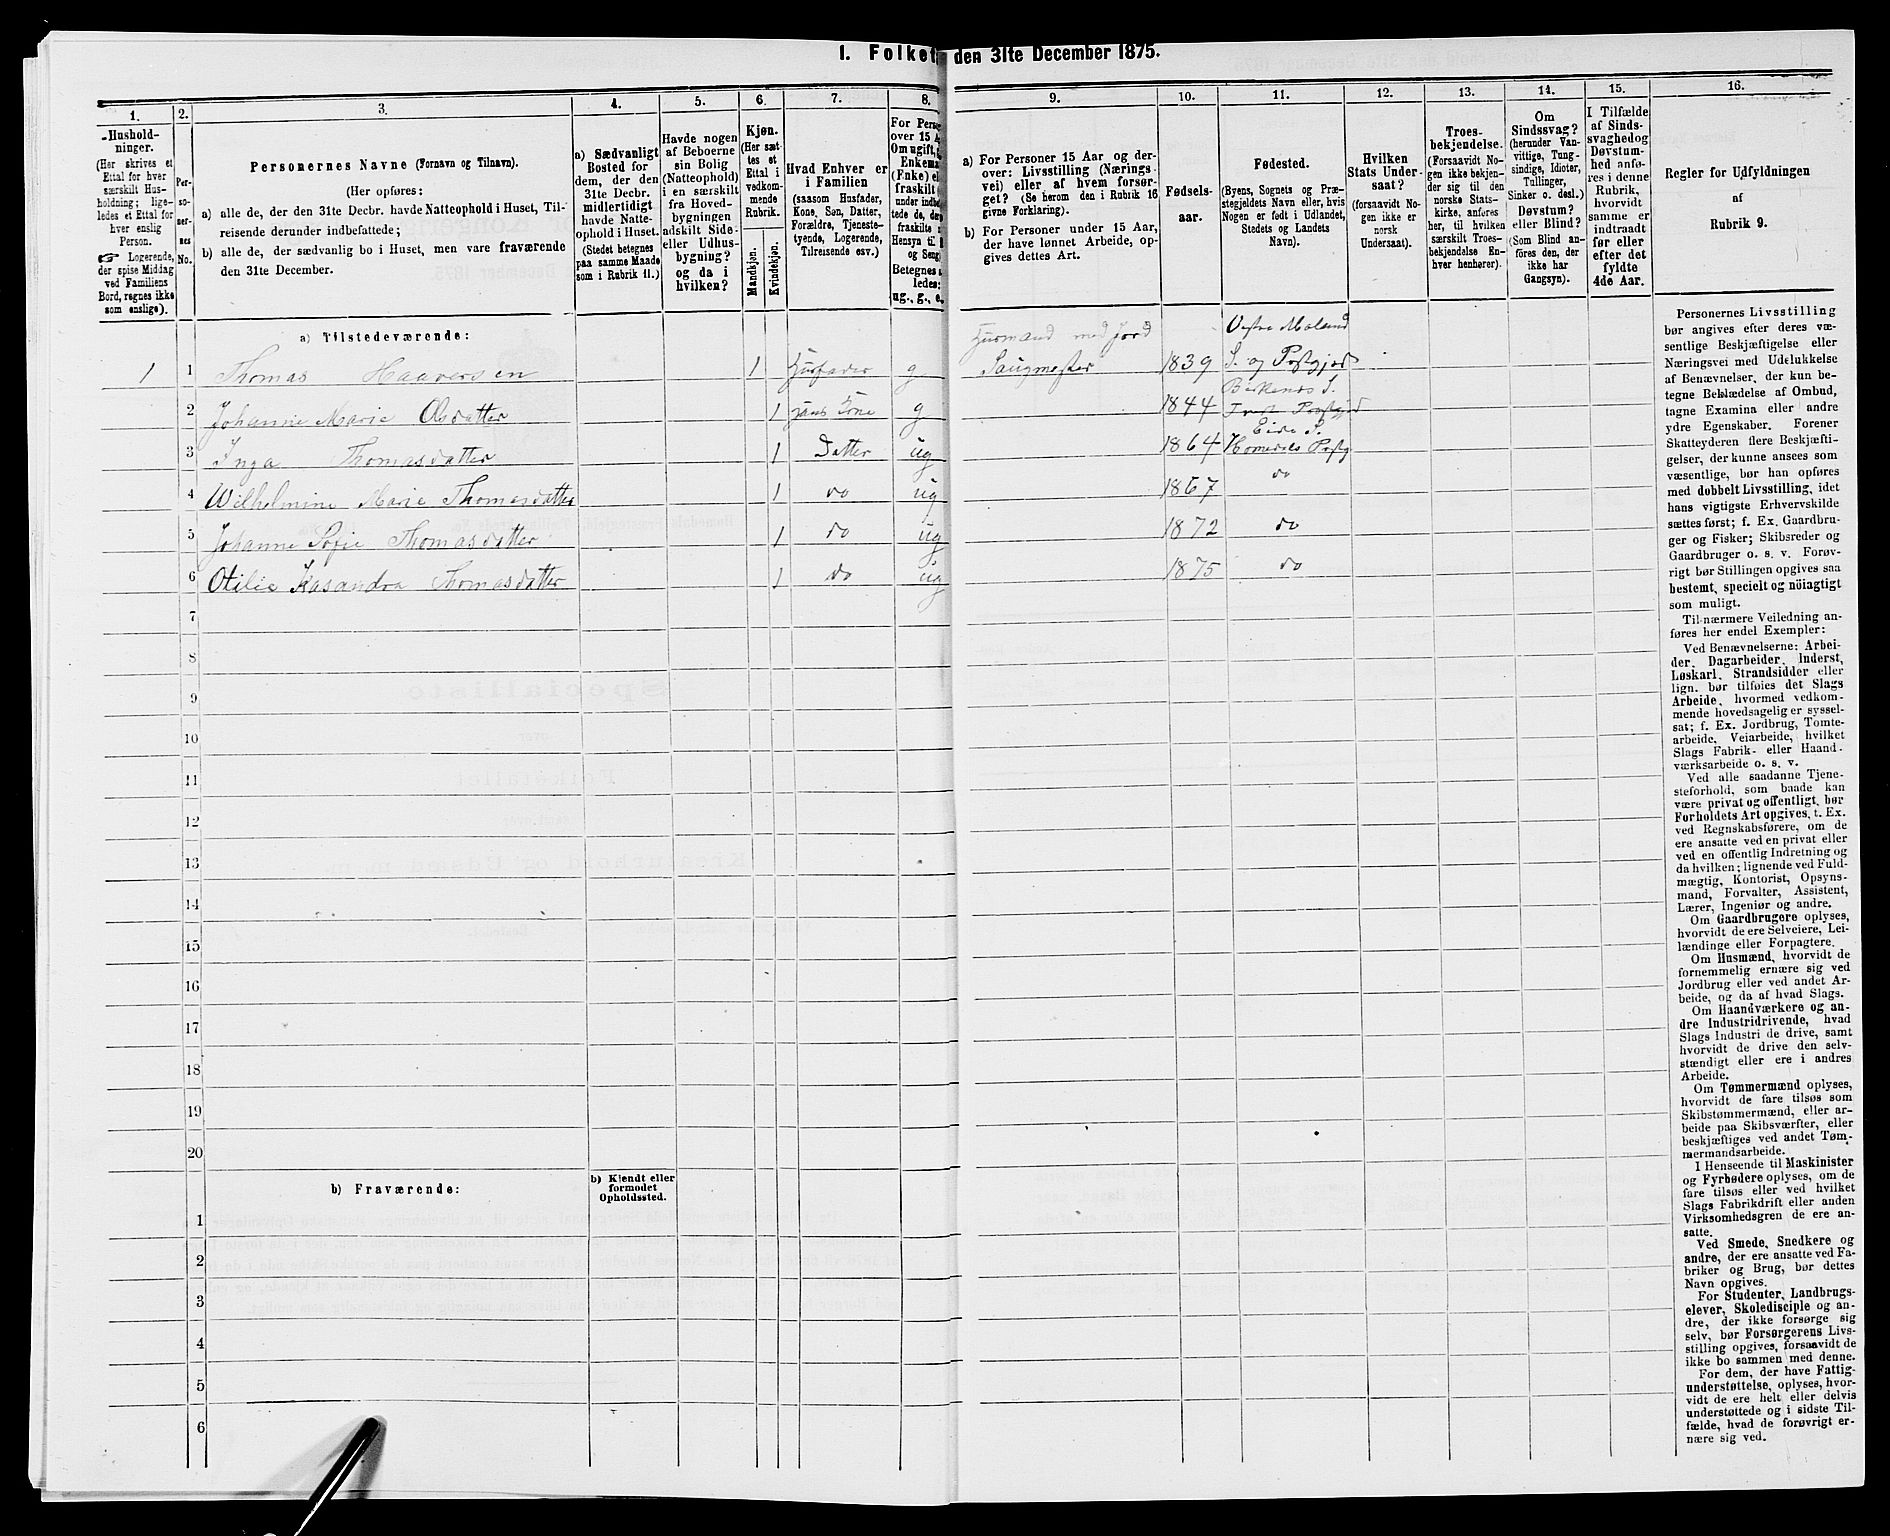 1. Folket
den 31te December 1875.
1.
2.
3.
4.
5.
6.
7.
8.
9.
10.
11.
12.
13.
14.
15.
16.
-Hushold-
ninger.
(Her skrives et
Ettal for hver
særskilt Hus-
holdning; lige-
ledes et Ettal for
hver enslig
Person.
☛ Logerende,
der spise Middag
ved Familiens
Bord, regnes ikke
som enslige).
Per-
so-
ner-
nes
No.
Personernes Navne (Fornavn og Tilnavn).
(Her opføres:
a) alle de, der den 31te Decbr. havde Natteophold i Huset, Til-
reisende derunder indbefattede;
b) alle de, der sædvanlig bo i Huset, men vare fraværende
den 31te December.
a) Sædvanligt
Bosted for
dem, der den
31te Decbr.
midlertidigt
havde Natte-
ophold i Huset.
(Stedet betegnes
paa samme Maade
som i Rubrik 11.)
Havde nogen
af Beboerne
sin Bolig
(Natteophold)
i en særskilt
fra Hoved-
bygningen
adskilt Side-
eller Udhus-
bygning?
og da i
hvilken?
Kjøn.
(Her sæt-
tes et
Ettal i
vedkom-
mende
Rubrik.
Mandkjøn.
Kvindekjøn.
Hvad Enhver er
i Familien
(saasom Husfader,
Kone, Søn, Datter,
Forældre, Tjeneste-
tyende, Logerende,
Tilreisende osv.)
For Perso
over 15 A
Om ugift,
Enkema
(Enke) el
fraskilt
under indbe
tede de, der
fraskilte
Hensyn til
og Seng
Betegnes
ledes:
ug., g., e.
a) For Personer 15 Aar og der-
over: Livsstilling (Nærings-
vei) eller af hvem forsør-
get? (Se herom den i Rubrik 16
givne Forklaring).
b) For Personer under 15 Aar,
der have lønnet Arbeide, op-
gives dettes Art.
Fødsels-
aar.
Fødested.
(Byens, Sognets og Præ-
stegjeldets Navn eller, hvis
Nogen er født i Udlandet,
Stedets og Landets
Navn).
Hvilken
Stats Under-
saat?
(forsaavidt No-
gen ikke er
norsk
Undersaat).
Troes-
bekjendelse.
(Forsaavidt No-
gen ikke bekjen-
der sig til den
norske Stats-
kirke, anføres
her, til hvilken
særskilt Troes-
bekjendelse En-
hver henhører).
Om
Sindssvag?
(herunder Van-
vittige, Tung-
sindige, Idioter,
Tullinger,
Sinker o. desl.)
Døvstum?
eller Blind?
(Som Blind an-
føres den, der
ikke har
Gangsyn).
I Tilfælde
af Sinds-
svaghed og
Døvstum-
hed anfø-
res i denne
Rubrik,
hvorvidt
samme er
indtraadt
før eller
efter det
fyldte
4de Aar.
Regler for Udfyldningen
af
Rubrik 9.
a) Tilstedeværende:
Husmand med Jord
Vestre Moland
1 1 Thomas Haaversen 1 Husfader g Saugmester 1839 S. og Præstgjeld
Birkenes S.
2 Johanne Marie Olsdatter 1 hans Kone g 1844 Præstgjeld
Eide S.
3 Inga Thomasdatter 1 Datter ug 1864 Homedals Præstg
4 Wilhelmine Marie Thomasdatter 1 do ug 1867 do
5 Johanne Sofie Thomasdatter 1 do ug 1872 do
6 Otilie Kasandra Thomasdatter 1 do ug 1875 do
7
8
9
10
11
12
13
14
15
16
17
18
19
20
b) Fraværende:
b) Kjendt eller
formodet
Opholdssted.
1
2
3
4
5
6
Personernes Livsstilling
bør angives efter deres væ-
sentlige Beskjæftigelse eller
Næringsvei med Udelukkelse
af Benævnelser, der kun be-
tegne Beklædelse af Ombud,
tagne Examina eller andre
ydre Egenskaber. Forener
Skatteyderen flere Beskjæfti-
gelser, der kunne ansees som
væsentlige, bør han opføres
med dobbelt Livsstilling, idet
hans vigtigste Erhvervskilde
sættes først; f. Ex. Gaardbru-
ger og Fisker; Skibsreder og
Gaardbruger o. s. v. Forøv-
rigt bør Stillingen opgives saa
bestemt, specielt og nöiagtigt
som muligt.
Til nærmere Veiledning an-
føres her endel Exempler:
Ved Benævnelserne: Arbei-
der, Dagarbeider, Inderst,
Løskarl, Strandsidder eller
lign. bør tilføies det Slags
Arbeide, hvormed vedkom-
mende hovedsagelig er syssel-
sat; f. Ex. Jordbrug, Tomte-
arbeide, Veiarbeide, hvilket
Slags Fabrik- eller Haand-
værksarbeide o. s. v.
Ved alle saadanne Tjene-
steforhold, som baade kan
være privat og offentligt, bør
Forholdets Art opgives, t. Ex.
ved Regnskabsførere, om de
ere ansatte ved en privat eller
ved en offentlig Indretning og
da hvilken; lignende ved Fuld-
mægtig, Kontorist, Opsyns-
mand, Forvalter, Assistent,
Lærer, Ingeniør og andre.
Om Gaardbrugere oplyses,
hvorvidt de ere Selveiere, Lei-
lændinge eller Forpagtere.
Om Husmænd, hvorvidt de
fornemmelig ernære sig ved
Jordbrug eller ved andet Ar-
beide, og da af hvad Slags.
Om Haandværkere og an-
dre Industridrivende, hvad
Slags Industri de drive, samt
hvorvidt de drive den selv-
stændigt eller ere i andres
Arbeide.
Om Tømmermænd oplyses,
hvorvidt de fare tilsøs som
Skibstømmermænd, eller ar-
beide paa Skibsværfter, eller
beskjæftiges ved andet Tøm-
mermandsarbeide.
I Henseende til Maskinister
og Fyrbødere oplyses, om de
fare tilsøs eller ved hvilket
Slags Fabrikdrift eller anden
Virksomhedsgren de ere an-
satte.
Ved Smede, Snedkere og
andre, der ere ansatte ved Fa-
briker og Brug, bør dettes
Navn opgives.
For Studenter, Landbrugs-
elever, Skoledisciple og an-
dre, der ikke forsørge sig
selv, bør Forsørgerens Livs-
stilling opgives, forsaavidt de
ikke bo sammen med denne.
For dem, der have Fattig-
understøttelse, oplyses, hvor-
vidt de ere helt eller delvis
understøttede og i sidste Til-
fælde, hvad de forøvrigt er-
nære sig ved.